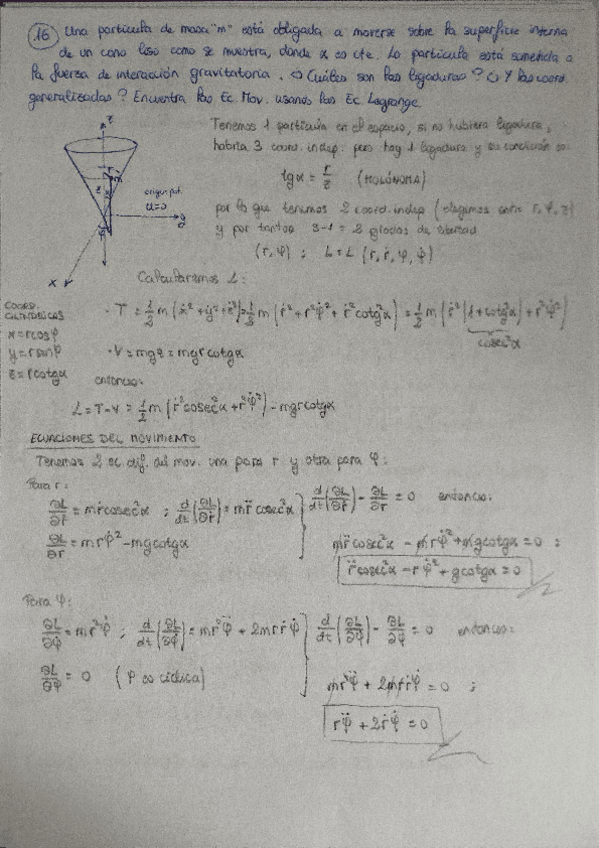 16 Una partícula de masa "m" está obligada a moverse sobre la superficie interna
de un cono liso como se muestra, donde α es cte. La partícula está sometida a
la fuerza de interacción gravitatoria. ¿Cuáles son las ligaduras? ¿Y las coord.
generalizadas? Encuentra las Ec. Mov. usando las Ec. Lagrange.
Tenemos 1 partícula en el espacio, si no hubiera ligadura,
habría 3 coord. indep. pero hay 1 ligadura y su condición es:
tgα = r/z (HOLÓNOMA)
z
r
m
origen pot.
U=0
y
x
por lo que tenemos 2 coord. indep (elegimos entre r, φ, z)
y por tanto 3-1 = 2 grados de libertad
(r, φ) ; L = L (r, ṙ, φ, φ̇)
Calcularemos L:
COORD.
CILÍNDRICAS
x = rcosφ
y = rsinφ
z = rcotgα
· T = 1/2 m (ẋ² + ẏ² + ż²) = 1/2 m (ṙ² + r²φ̇² + ṙ²cotg²α) = 1/2 m (ṙ²(1+cotg²α) + r²φ̇²)
cosec²α
· V = mgz = mgrcotgα
entonces:
L = T-V = 1/2 m (ṙ²cosec²α + r²φ̇²) - mgrcotgα
ECUACIONES DEL MOVIMIENTO
Tenemos 2 ec. dif. del mov. una para r y otra para φ:
Para r:
∂L/∂ṙ = mṙcosec²α ; d/dt (∂L/∂ṙ) = mr̈cosec²α
∂L/∂r = mrφ̇² - mgcotgα
d/dt (∂L/∂ṙ) - ∂L/∂r = 0 entonces:
mr̈cosec²α - mrφ̇² + mgcotgα = 0 ;
r̈cosec²α - rφ̇² + gcotgα = 0
Para φ:
∂L/∂φ̇ = mr²φ̇ ; d/dt (∂L/∂φ̇) = mr²φ̈ + 2mrṙφ̇
∂L/∂φ = 0 (φ es cíclica)
d/dt (∂L/∂φ̇) - ∂L/∂φ = 0 entonces:
mr²φ̈ + 2mrṙφ̇ = 0 ;
rφ̈ + 2ṙφ̇ = 0